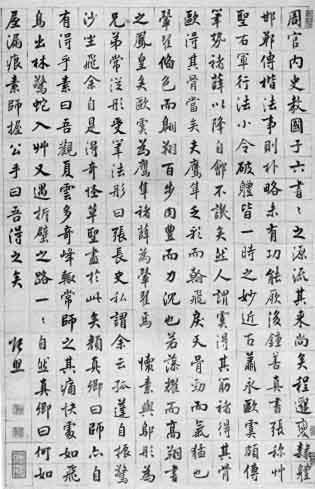 周官內史教國子六書〻之源流其來尚矣程邈變隸體
邯鄲傳楷法事則朴略未有功能厥後鍾善真書張稱艸
聖右軍行法小令破體皆一時之妙近古蕭永歐虞頗傳
筆勢褚薛以降自鄶不譏矣然人謂虞得其筋褚得其
歐得其骨當矣夫鷹隼乏彩而翰飛戾天骨勁而氣猛也
翬翟備色而翱翔百步肉豐而力沉也若藻耀而高翔書
之鳳皇矣歐虞為鷹隼褚薛為翬翟焉 懷素與鄔彤為
兄弟常從彤受筆法彤曰張長史私謂余云孤蓬自振驚
沙坐飛余自是得奇怪草聖盡於此矣顏真卿曰師亦自
有得乎素曰吾觀夏雲多奇峰輒常師之其痛快處如飛
鳥出林驚蛇入艸又遇折壁之路一一自然真卿曰何如
屋漏痕素師握公手曰吾得之矣 張照